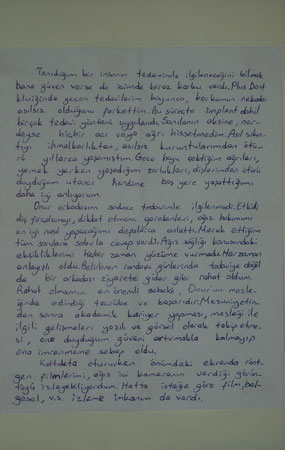 Tanıdığım bir insanın tedavimle ilgileneceğini bilmek
bana güven verse de içimde biraz korku vardı. Plus Dent
kliniğinde geçen tedavilerim boyunca, korkumun nekadar
asılsız olduğunu farkettim. Bu süreçte implant dahil
birçok tedavi yöntemi uygulandı. Sanılanın aksine, ner-
deyse hiçbir acı veya ağrı hissetmedim. Asıl sıkın-
tıyı ihmalkarlıktan, asılsız kuruntularımdan ötü-
rü yıllarca yaşamıştım. Gece boyu çektiğim ağrıları,
yemek yerken yaşadığım zorlukları, dişlerimden ötürü
duyduğum utancı kendime boş yere yaşattığımı
daha iyi anlıyorum.
Onur arkadaşım sadece tedavimle ilgilenmedi. Etkili
diş fırçalamayı, dikkat etmem gerekenleri, ağız bakımımı
en iyi nasıl yapacağımı defalarca anlattı. Merak ettiğim
tüm sorulara sabırla cevap verdi. Ağız sağlığı konusundaki
eksikliklerimi hiçbir zaman yüzüme vurmadı. Her zaman
anlayışlı oldu. Belirlenen randevu günlerinde tedaviye değil
de bir arkadaşı ziyarete gider gibi rahat oldum.
Rahat olmamın en önemli sebebi, Onur'un mesle-
ğinde edindiği tecrübe ve başarıdır. Mezuniyetin-
den sonra akademik kariyer yapması, mesleği ile
ilgili gelişmeleri yazılı ve görsel olarak takip etme-
si, ona duyduğum güveni artırmakla kalmayıp
ona imrenmeme sebep oldu.
Koltukta otururken önümdeki ekranda rönt-
gen filmlerimi, ağız içi kameranın verdiği görün-
tüyü izleyebiliyordum. Hatta isteğe göre film, bel-
gesel, v.s. izleme imkanım da vardı.